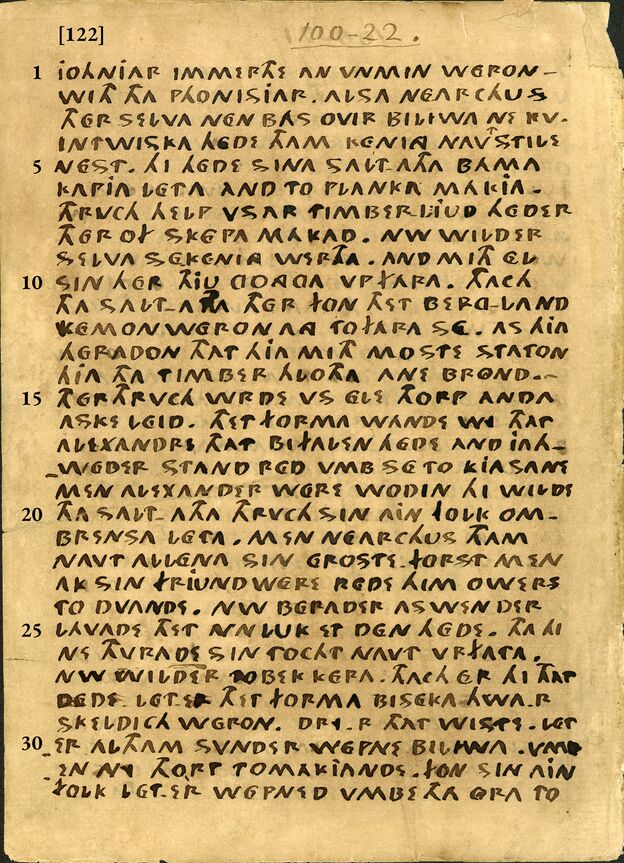 [122]
100-22.
1 IOHNIAR IMMERTHE AN VNMIN WERON-
WITH THA PHONISIAR. ALSA NEARCHUS
THER SELVA NEN BAS OVIR BILIWA NE KV.
INTWISKA HEDE THAM KENING NAVT STILE
5 NEST. HI HEDE SINA SALT-ATHA BHAMA
KAPIA LETA AND TO PLANKA MAKIA.
THRVCH HELP VSAR TIMBER-LIUD HEDER
THER OF SKEPA MAKAD. NW WILDER
SELVA SEKENING WERTHA. AND MITH EL
10 SIN HER THIU GONGGA VPFARA. THACH
THA SALT-ATHA THER FON THET BERG-LAND
KEMON WERON NG TOFARA SE. AS HIA
HERADON THAT HIA MITH MOSTE STATON
HIA THA TIMBER HLOTHA ANE BROND.-
15 THERTHRVCH WRDE VS ELE THORP ANDA
ASKE LEID. THET FORMA WANDE WI THAT
ALEXANDRE THAT BIFALEN HEDE AND IAH-
-WEDER STAND RED VMB SE TO KIASANE
MEN ALEXANDER WERE WODIN HI WILDE
20 THA SALT-ATHA THRVCH SIN AIN FOLK OM-
BRENSA LETA. MEN NEARCHUS THAM
NAVT ALLENA SIN GROSTE FORST MEN
AK SIN FRIUND WERE REDE HIM OWERS
TO DVANDE. NW BERADER AS WEN DER
25 LAVADE THET NN LUK ET DEN HEDE. THA HI
NE THVRADE SIN TOCHT NAVT VRFATA.
NW WILDER TOBEK KERA. THACH ER HI THAT
DEDE. LET-ER THET FORMA BISEKA HWA-R
SKELDICH WERON. DRY-R THAT WISTE. LET
30 -ER ALTHAM SVNDER WEPNE BILIWA. VMB
-EN NY THORP TO MAKIANDE. FON SIN AIN
FOLK LET-ER WEPNED VMBE THA ORA TO